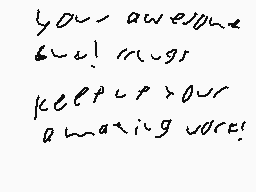 your awesome
bud! mugs
keep up your
amazing work!